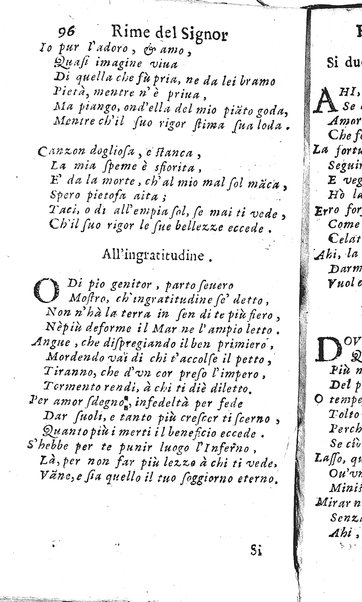 96 Rime del Signor
Io pur l'adoro, & amo,
Quasi imagine viua
Di quella che fù pria, ne da lei bramo
Pietà, mentre n'è priua,
Ma piango, ond'ella del mio piãto goda,
Mentre ch'il suo rigor stima sua loda.
Canzon dogliosa, e stanca,
La mia speme è sfiorita,
E' da la morte, ch'al mio mal sol mãca,
Spero pietosa aita;
Taci, o dì all'empia sol, se mai ti vede,
Ch'il suo rigor le sue bellezze eccede.
All'ingratitudine.
O Di pio genitor, parto seuero
Mostro, ch'ingratitudine se' detto,
Non n'hà la terra in sen di te più fiero,
Nèpiù deforme il Mar ne l'ampio letto.
Angue, che dispregiando il ben primiero,
Mordendo vai di chi t'accolse il petto,
Tiranno, che d'vn cor preso l'impero,
Tormento rendi, à chi ti diè diletto.
Per amor sdegno, infedeltà per fede
Dar suoli, e tanto più crescer ti scerno,
Quanto più i merti il beneficio eccede.
S'hebbe per te punir luogo l'Inferno,
Là, per non far più lezzo à chi ti vede,
Vãne, e sia quello il tuo soggiorno eterno.
Si
Si du
AHI,
Se
Amor
Che f
La fort
Seguir
E veg
Hò la
Erro for
Come
Celat
Ahi, la
Darm
Vuol e
DOV
Del p
O tempe
Tolto
Perch
Se ciò
Lasso, qu
Qu'vn
Minis
Mirar n
Senza
Ahi,